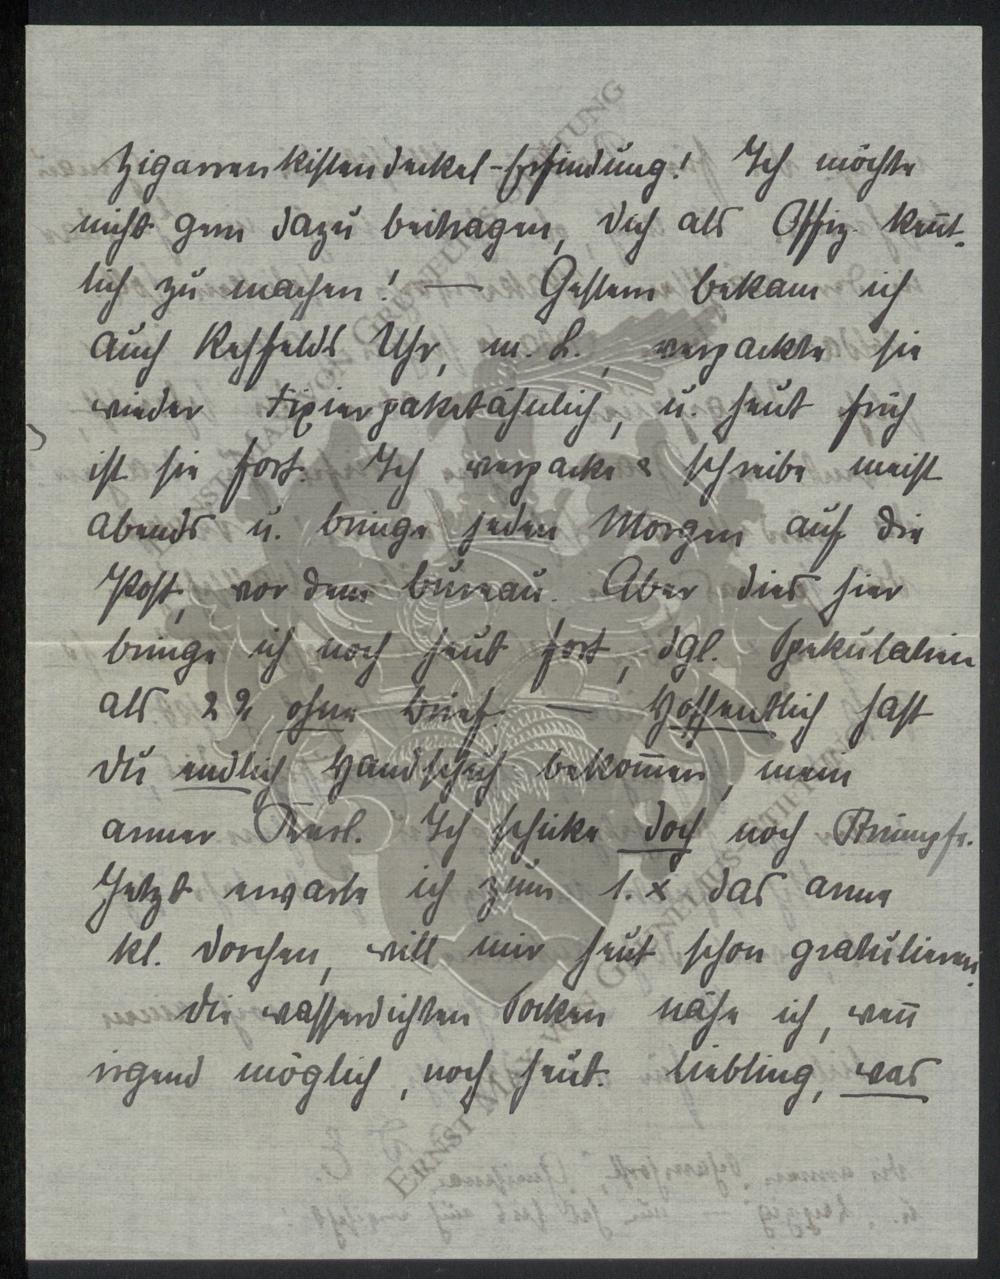 Zigarrenkistendeckel-Erfindung! Ich möchte
nicht gern dazu beitragen, dich als Offiz. kent-
lich zu machen! — Gestern bekam ich
auch Rehfelds Uhr, m. L., verpackte sie
wieder Fixierpaketähnlich, u. heut früh
ist sie fort. Ich verpacke & schreibe meist
abends u. bringe jeden Morgen auf die
Post, vor dem bureau. Aber dies hier
bringe ich noch heut fort, dgl. Spekulatien
als 22 ohne Brief. — Hoffentlich hast
du endlich Handschuh bekom̄en, mein
armer Kerl. Ich schicke doch noch Strümpfe.
Jetzt erwarte ich zum 1. X das arme
kl. Dorchen, will mir heut schon gratulieren.
Die wasserdichten Socken nähe ich, wen̄
irgend möglich, noch heut. Liebling, was
ERNST MAX VON GRUNELIUS-STIFTUNG
ERNST MAX VON GRUNELIUS-STIFTUNG